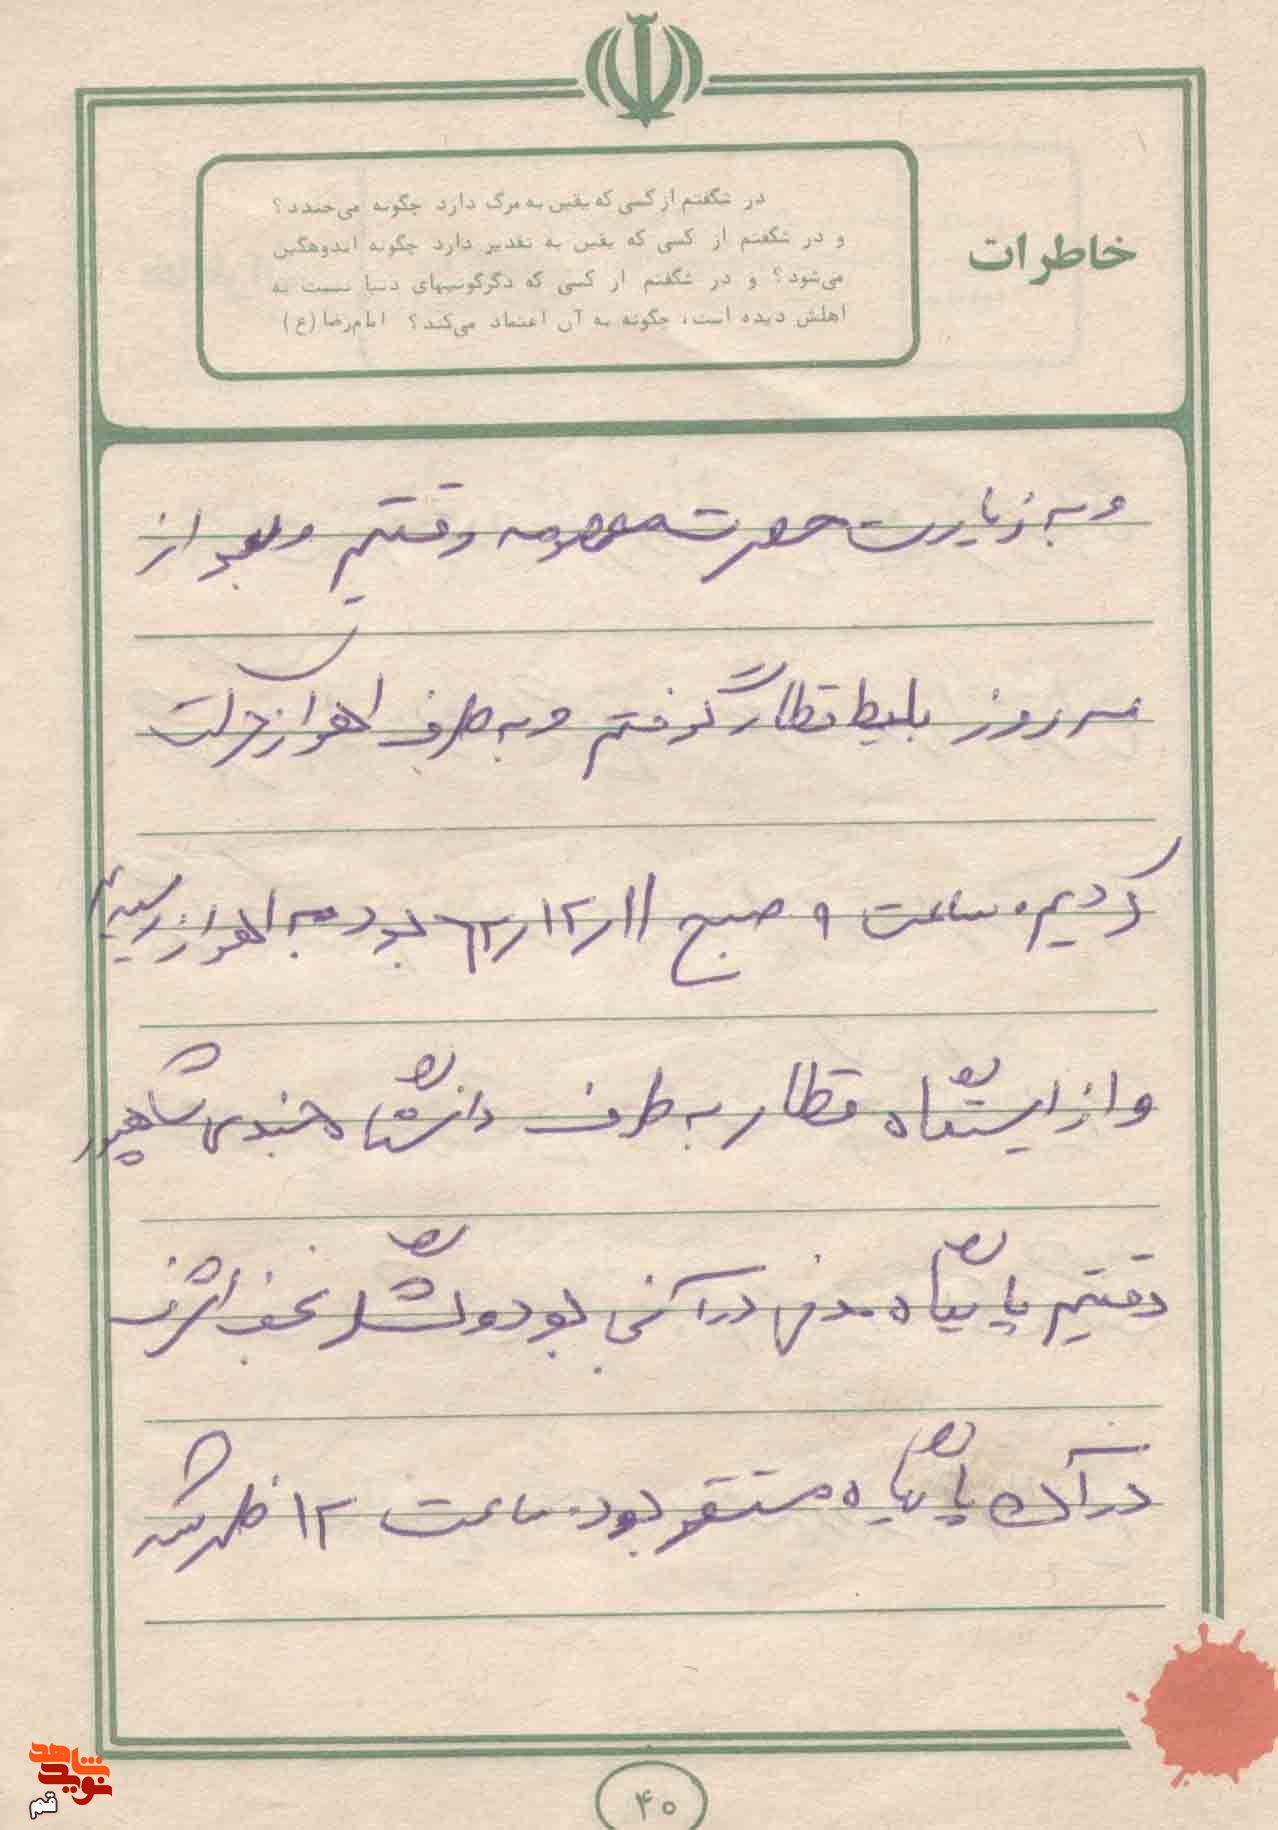 خاطرات
در شگفتم از کسی که یقین به مرگ دارد چگونه می‌خندد؟
و در شگفتم از کسی که یقین به تقدیر دارد چگونه اندوهگین
می‌شود؟ و در شگفتم از کسی که دگرگونیهای دنیا نسبت به
اهلش دیده است، چگونه به آن اعتماد می‌کند؟ امام‌رضا (ع)
و به زیارت حضرت معصومه رفتیم و بعد از
سه روز بلیط قطار گرفتم و به طرف اهواز حرکت
کردیم. ساعت ۹ صبح ۱۱ر۱۲ر۶۲ بود به اهواز رسیدیم
و از ایستگاه قطار به طرف دانشگاه جندی شاهپور
رفتیم پایگاه مدنی در آن بود و لشگر نجف اشرف
در آن پایگاه مستقر بود. ساعت ۱۲ ظهر شد
۴۰
نوید شاهد
قم